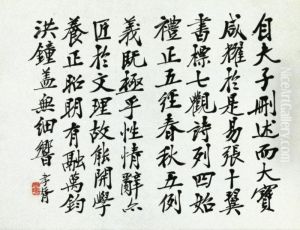 自夫子刪述而大寶
咸耀於是易張十翼
書標七觀詩列四始
禮正五經春秋五例
義既極乎性情辭亦
匠於文理故能開學
養正昭明有融萬鈞
洪鐘蓋無細響 孝胥
NiceArtGallery.com